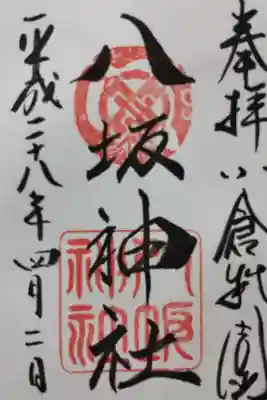 奉拝 小倉祇園
八坂神社
平成二十八年四月二日